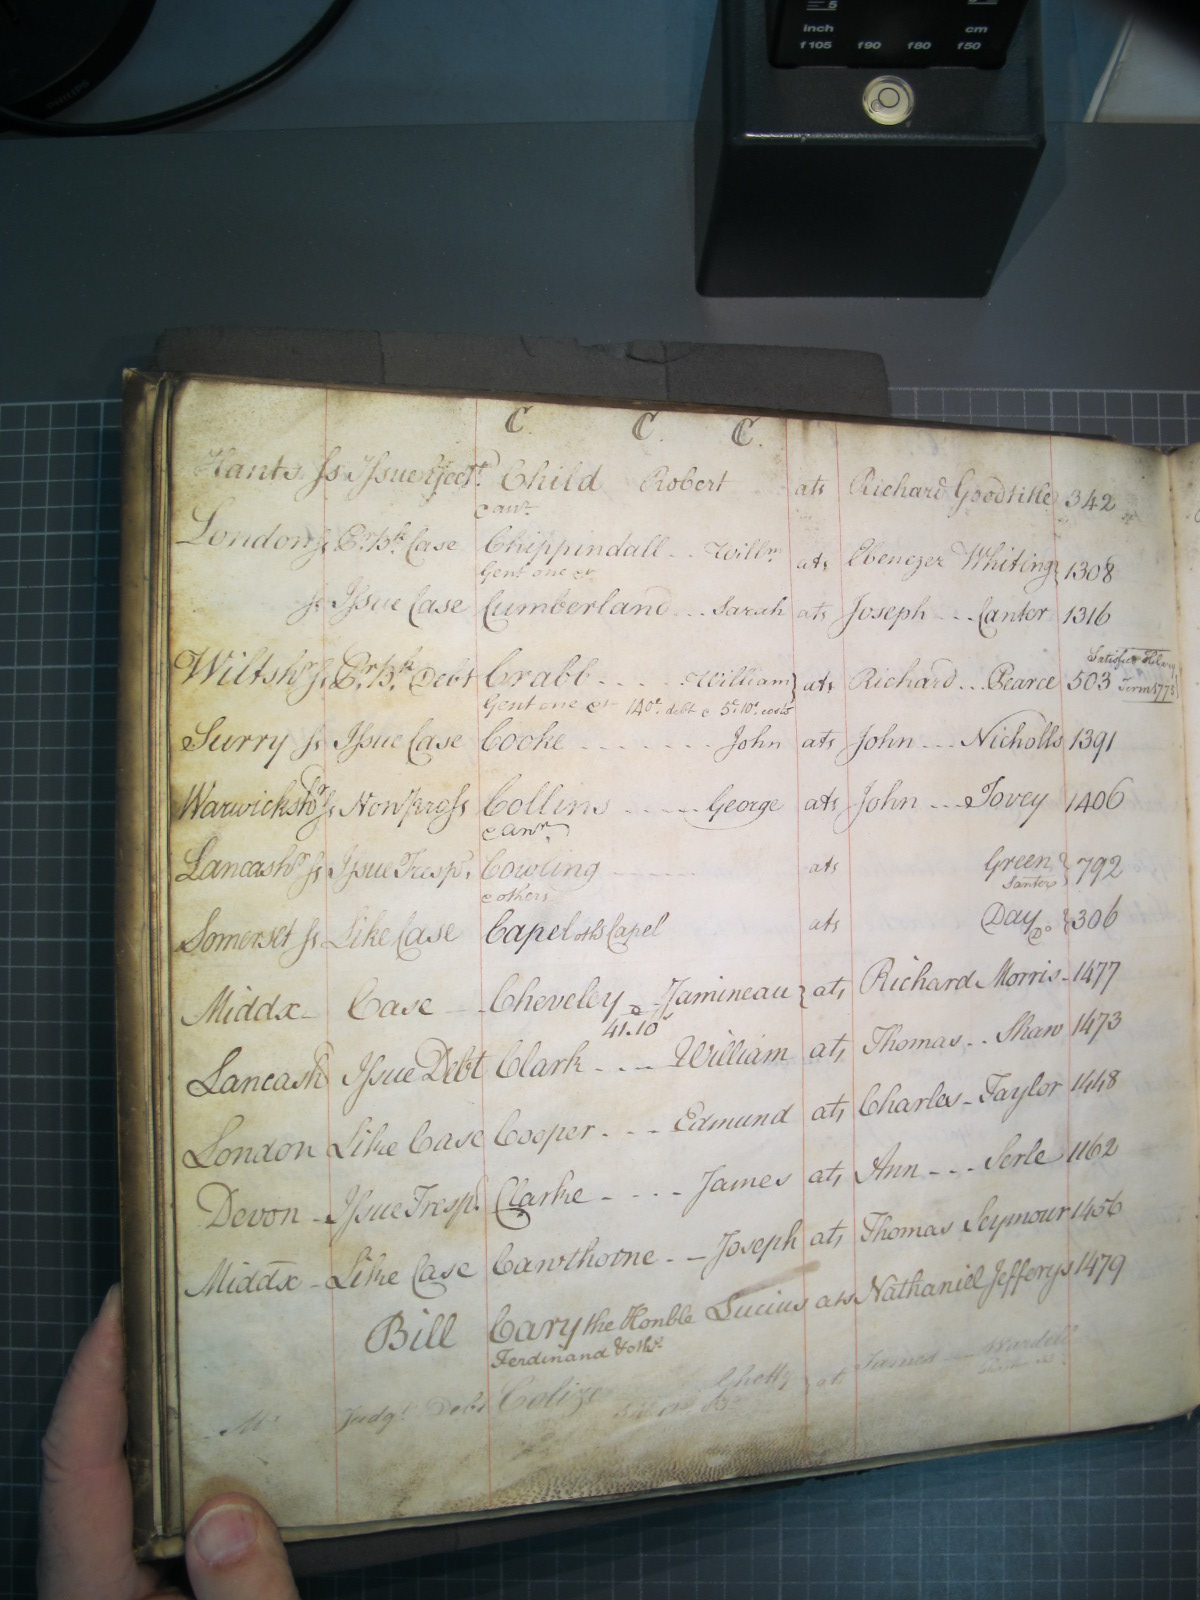 inch cm
f105 f90 f80 f50
PHILIPS
C. C. C.
Hants ss Issue Eject.t Child Robert ats Richard Goodtitle 342
& anr.
London ss Er. Bk. Case Chippindall .. Willm. ats Ebenezer Whiting 1308
Gent one &c
ss Issue Case Cumberland .. Sarah ats Joseph ... Canter 1316
Satisfied Hilary
Wiltshr. ss Er. Bk. Debt Crabb .... William } ats Richard ... Pearce 503 Term 1773
Gent one &c 140£. debt & 5£.10s. costs
Surry ss Issue Case Cooke ....... John ats John ... Nicholls 1391
Warwickshr. ss Non pross Collins ..... George ats John ... Tovey 1406
& anr.
Lancashr. ss Issue Tresp. Cowling ...... ats Green } 792
& others
Somerset ss Like Case Capel ats Capel ats Day } 306
Do
Middx - Case - Cheveley & Jamineau } ats Richard Morris - 1477
41.10
Lancash Issue Debt Clark .... William ats Thomas .. Shaw 1473
London Like Case Cooper ... Edmund ats Charles - Taylor 1448
Devon - Issue Tresp. Clarke .... James ats Ann ... Serle 1162
Middx - Like Case Cawthorne .. Joseph ats Thomas Seymour 1456
Bill Cary the Honble Lucius ats Nathaniel Jefferys 1479
Ferdinand & othr.
Judgt. Debt ats James Wardell